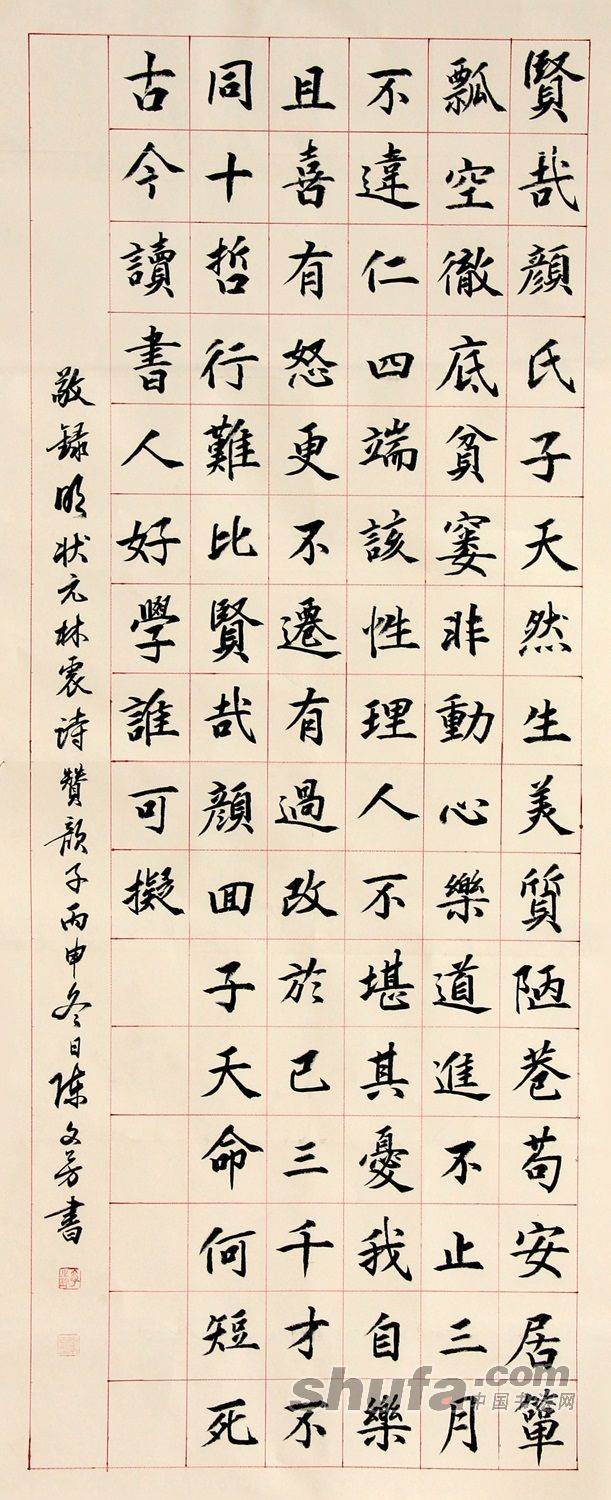 賢哉顔氏子天然生美質陋巷苟安居簞
瓢空徹底貧窶非動心樂道進不止三月
不違仁四端該性理人不堪其憂我自樂
且喜有怒更不遷有過改於己三千才不
同十哲行難比賢哉顔回子天命何短死
古今讀書人好學誰可擬
敬録明状元林震诗贊颜子丙申冬日陈文芳書
shufa.com
中国书法网